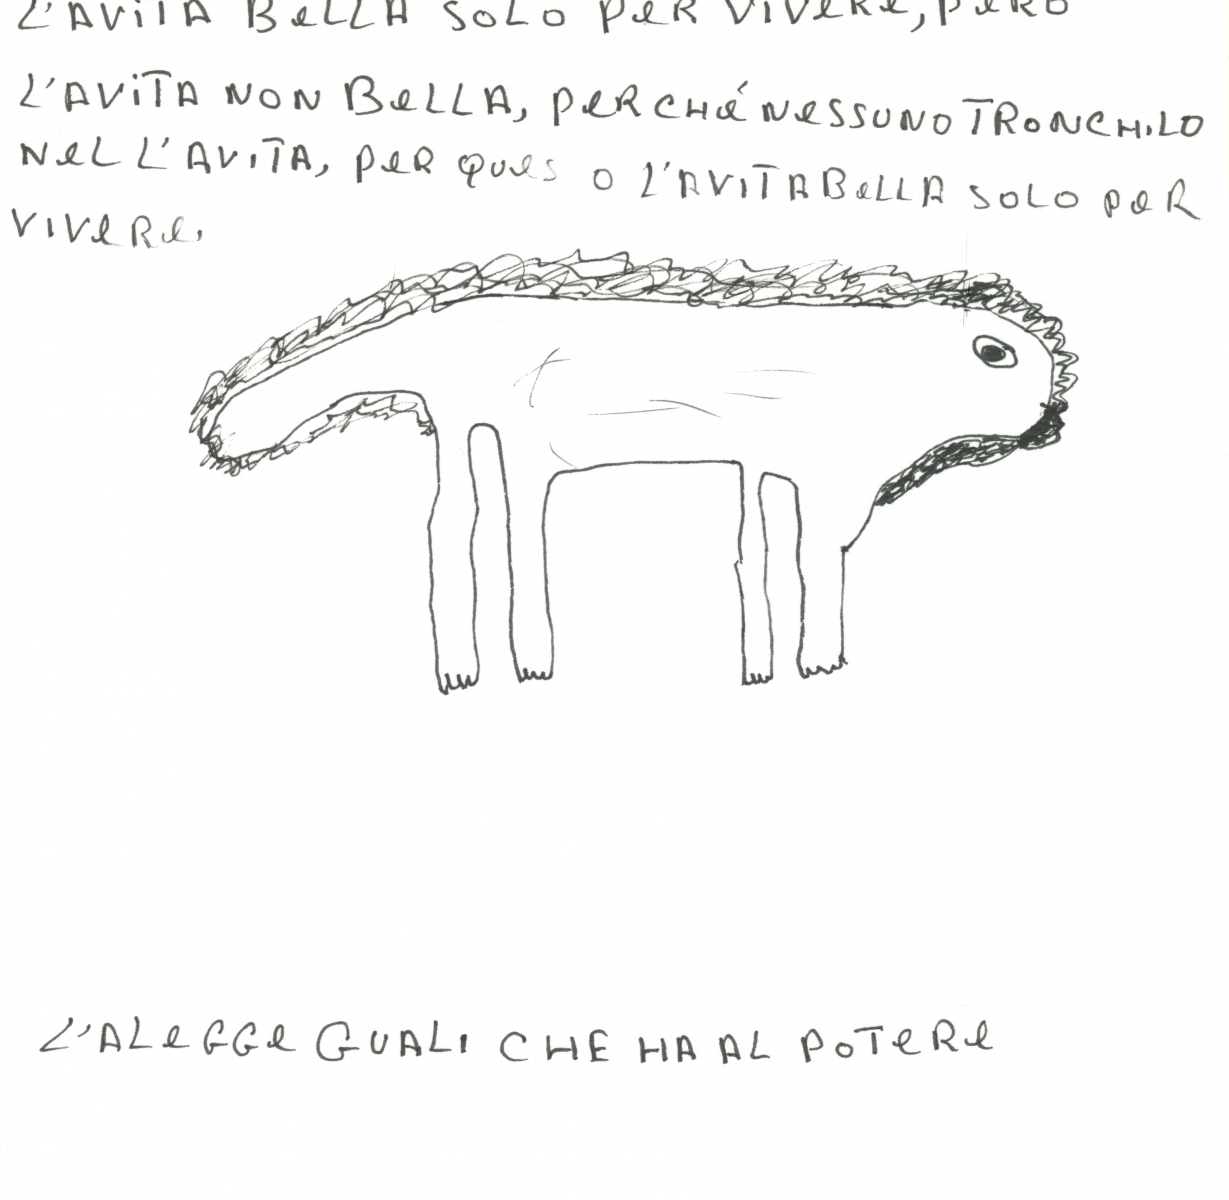 L'AVITA BELLA SOLO PER VIVERE, PERÒ
L'AVITA NON BELLA, PERCHÉ NESSUNO TRONCHILO
NEL L'AVITA, PER QUES O L'AVITA BELLA SOLO PER
VIVERE.
L'ALEGGE GUALI CHE HA AL POTERE